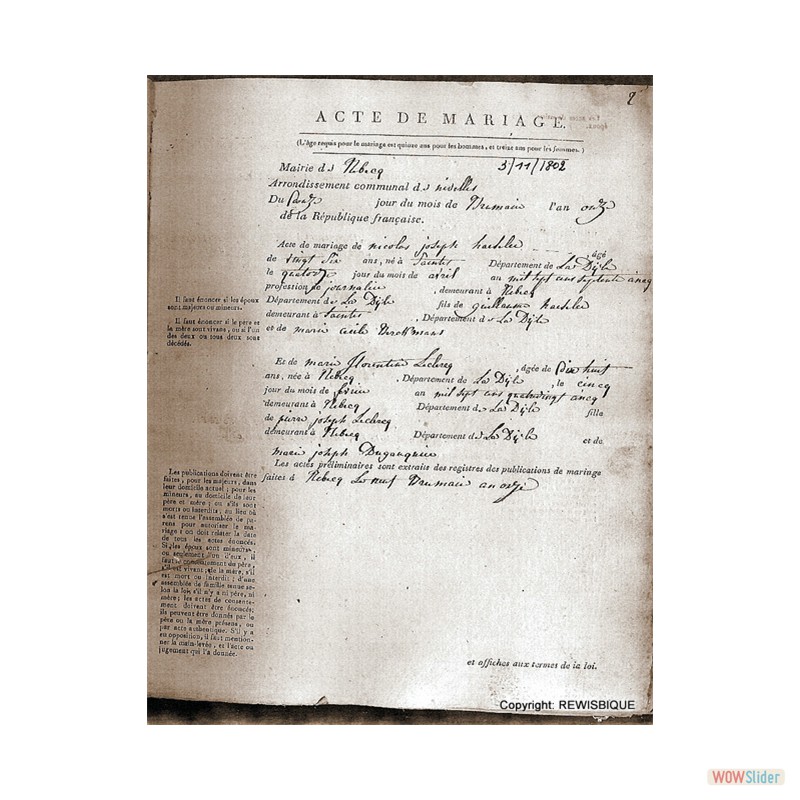 2
ACTE DE MARIAGE.
(L'âge requis pour le mariage est quinze ans pour les hommes, et treize ans pour les femmes.)
Mairie de Rebecq 5/11/1802
Arrondissement communal de nivelles
Du jour du mois de Brumaire l'an onze
de la République française.
Acte de mariage de nicolas joseph âgé
de vingt Six ans, né à Saintes Département de La Dÿle
le quatorze jour du mois de avril an mil sept cens septente cincq
profession de journalier , demeurant à Rebecq
Département de La Dÿle fils de guillaume
demeurant à Saintes , Département de La Dÿle
et de marie
Il faut énoncer si les époux
sont majeurs ou mineurs.
Il faut énoncer si le père et
la mère sont vivans, ou si l'un
des deux ou tous deux sont
décédés.
Et de marie florentine Leclercq , âgée de Dix huit
ans, née à Rebecq , Département de La Dÿle , le cincq
jour du mois de an mil sept cens quatrevingt cincq
demeurant à Rebecq Département de La Dÿle fille
de pierre joseph Leclercq
demeurant à Rebecq Département de La Dÿle et de
marie joseph
Les actes préliminaires sont extraits des registres des publications de mariage
faites à Rebecq Le neuf Brumaire an onze
Les publications doivent être
faites, pour les majeurs, dans
leur domicile actuel; pour les
mineurs, au domicile de leur
père et mère; ou s'ils sont
morts ou interdits, au lieu où
s'est tenue l'assemblée de pa-
rens pour autoriser le ma-
riage: on doit relater la date
de tous les actes énoncés.
Si les époux sont mineurs
ou seulement l'un d'eux, il
faut le consentement du père
s'il est vivant; de la mère, s'il
est mort ou interdit; d'une
assemblée de famille tenue se-
lon la loi s'il n'y a ni père, ni
mère; les actes de consente-
ment doivent être énoncés;
ils peuvent être donnés par le
père ou la mère présens, ou
par acte authentique. S'il y a
eu opposition, il faut mention-
ner la main-levée, et l'acte ou
jugement qui l'a donnée.
et affiches aux termes de la loi.
Copyright: REWISBIQUE
WOWSlider